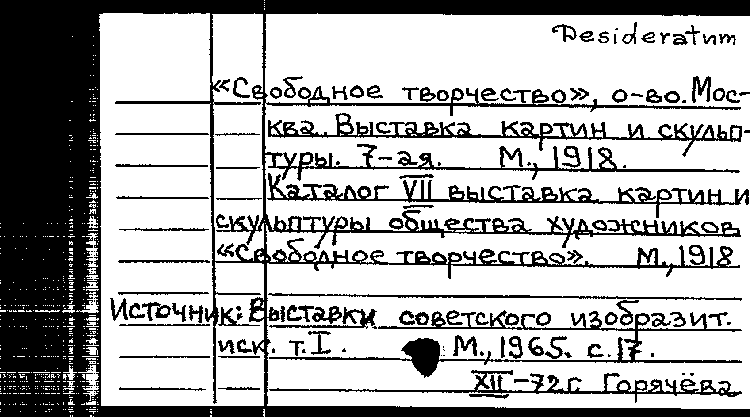 Desideratum
«Свободное творчество», о-во. Мос-
ква. Выставка картин и скульп-
туры. 7-ая. М., 1918.
Каталог VII выставка картин и
скульптуры общества художников
«Свободное творчество». М., 1918
Источник: Выставки советского изобразит.
иск. т. I. М., 1965. с. 17.
XII-72 г. Горячёва